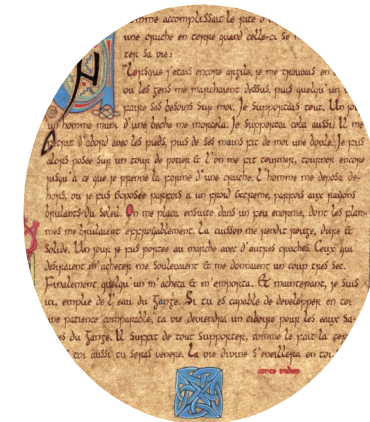 mme accomplissait le rite d
une cruche en terre quand celle-ci se m
ter sa vie :
"Lorsque j'étais encore argile, je me trouvais en
où les gens me marchaient dessus, puis quelqu'un
faire ses besoins sur moi. Je supportais tout. Un jou
un homme muni d'une bêche me morcela. Je supportai cela aussi. Il me
pétrit d'abord avec les pieds, puis de ses mains fit de moi une boule. Je fus
alors posée sur un tour de potier & l'on me fit tourner, tourner encore
jusqu'à ce que je prenne la forme d'une cruche. L'homme me déposa de-
hors, où je fus exposée parfois à un froid extrême, parfois aux rayons
brûlants du soleil. On me plaça ensuite dans un feu énorme, dont les flam-
mes me brûlaient effroyablement. La cuisson me rendit rouge, dure &
solide. Un jour je fus portée au marché avec d'autres cruches. Ceux qui
désiraient m'acheter me soulevaient & me donnaient un coup très sec.
Finalement quelqu'un m'acheta & m'emporta. Et maintenant, je suis
ici, emplie de l'eau du Gange. Si tu es capable de développer en toi
une patience comparable, ta vie deviendra un ciboire pour les eaux sa-
es du Gange. Il suffit de tout supporter, comme le fait la ter
toi aussi tu seras vénéré. La vie divine s'éveillera en toi.
conte indien